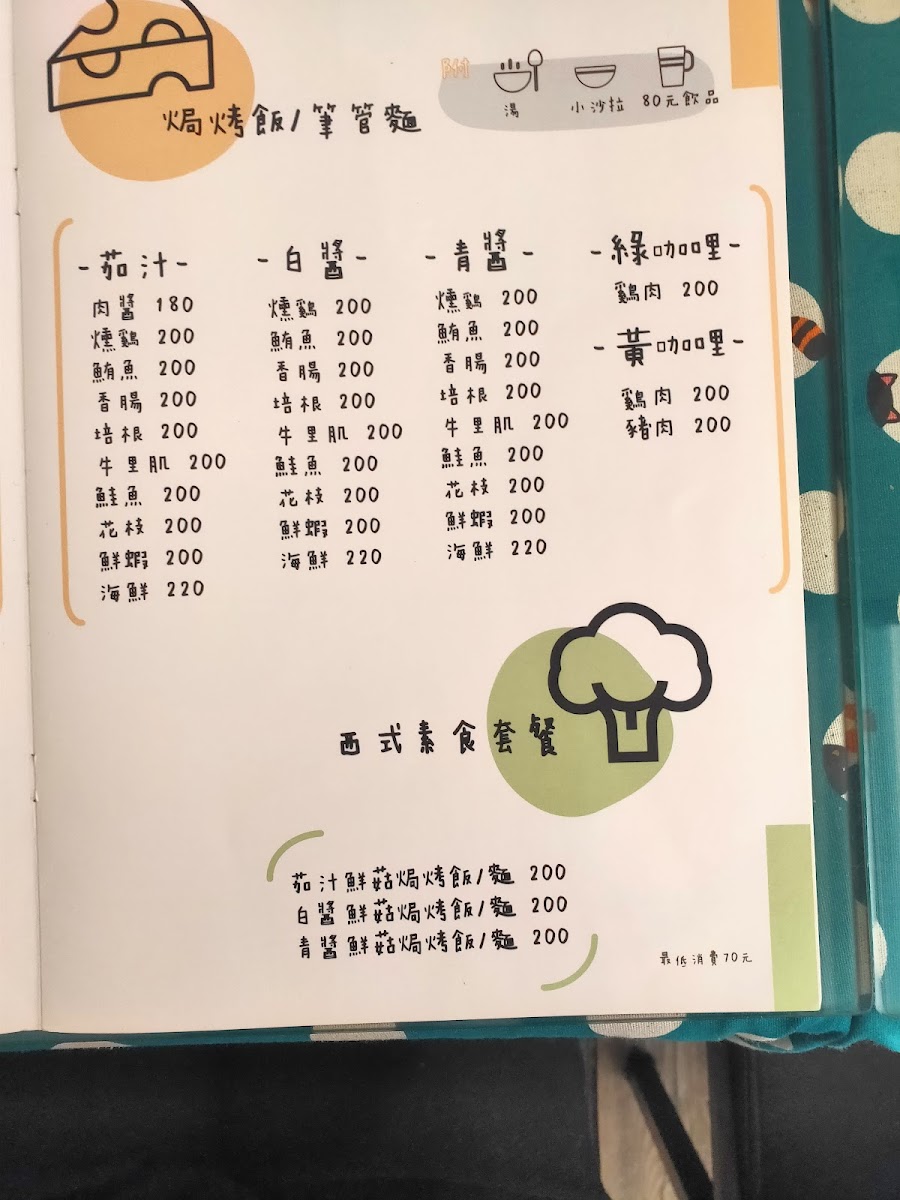 焗烤飯/筆管麵
附
湯 小沙拉 80元飲品
-茄汁-
肉醬 180
燻鷄 200
鮪魚 200
香腸 200
培根 200
牛里肌 200
鮭魚 200
花枝 200
鮮蝦 200
海鮮 220
-白醬-
燻鷄 200
鮪魚 200
香腸 200
培根 200
牛里肌 200
鮭魚 200
花枝 200
鮮蝦 200
海鮮 220
-青醬-
燻鷄 200
鮪魚 200
香腸 200
培根 200
牛里肌 200
鮭魚 200
花枝 200
鮮蝦 200
海鮮 220
-綠咖哩-
鷄肉 200
-黃咖哩-
鷄肉 200
豬肉 200
西式素食套餐
茄汁鮮菇焗烤飯/麵 200
白醬鮮菇焗烤飯/麵 200
青醬鮮菇焗烤飯/麵 200
最低消費70元